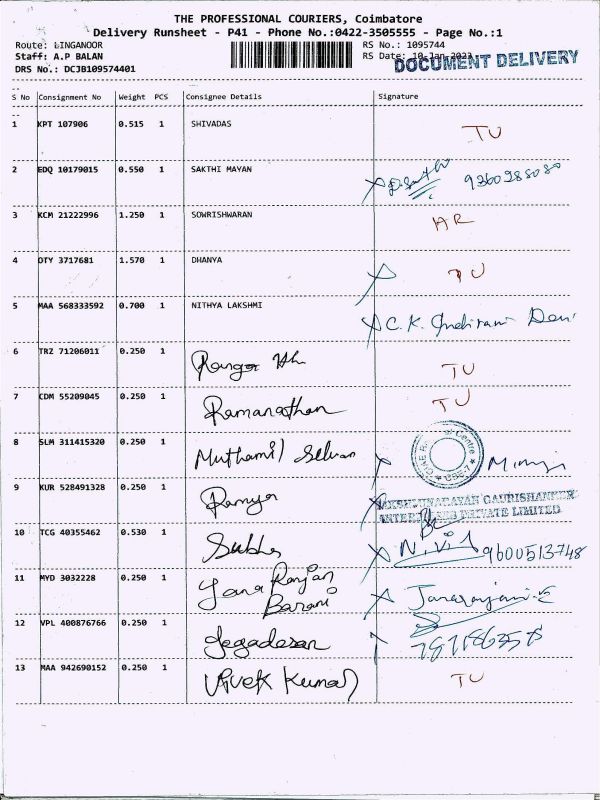 THE PROFESSIONAL COURIERS, Coimbatore
Delivery Runsheet - P41 - Phone No.:0422-3505555 - Page No.:1
Route: LINGANOOR RS No.: 1095744
Staff: A.P BALAN RS Date: 10-Jan-2023
DOCUMENT DELIVERY
DRS No.: DCJB109574401
S No Consignment No Weight PCS Consignee Details Signature
1 KPT 107906 0.515 1 SHIVADAS TU
2 EDQ 10179015 0.550 1 SAKTHI MAYAN 9360288080
3 KCM 21222996 1.250 1 SOWRISHWARAN HR
4 DTY 3717681 1.570 1 DHANYA TU
5 MAA 568333592 0.700 1 NITHYA LAKSHMI C.K. Indirani Devi
6 TRZ 71206011 0.250 1 Ranga TU
7 CDM 55209045 0.250 1 Ramanathan TU
8 SLM 311415320 0.250 1 Muthamil Selvan
9 KUR 528491328 0.250 1 Ramya
LAKSHMINARAYAN GAURISHANKER
ENTERPRISES PRIVATE LIMITED
10 TCG 40355462 0.530 1 Subha 9600513748
11 MYD 3032228 0.250 1 Jana Ranjan Janaranjani.E
Barani
12 VPL 400876766 0.250 1 Jegadesan
13 MAA 942690152 0.250 1 Vivek Kumar TU